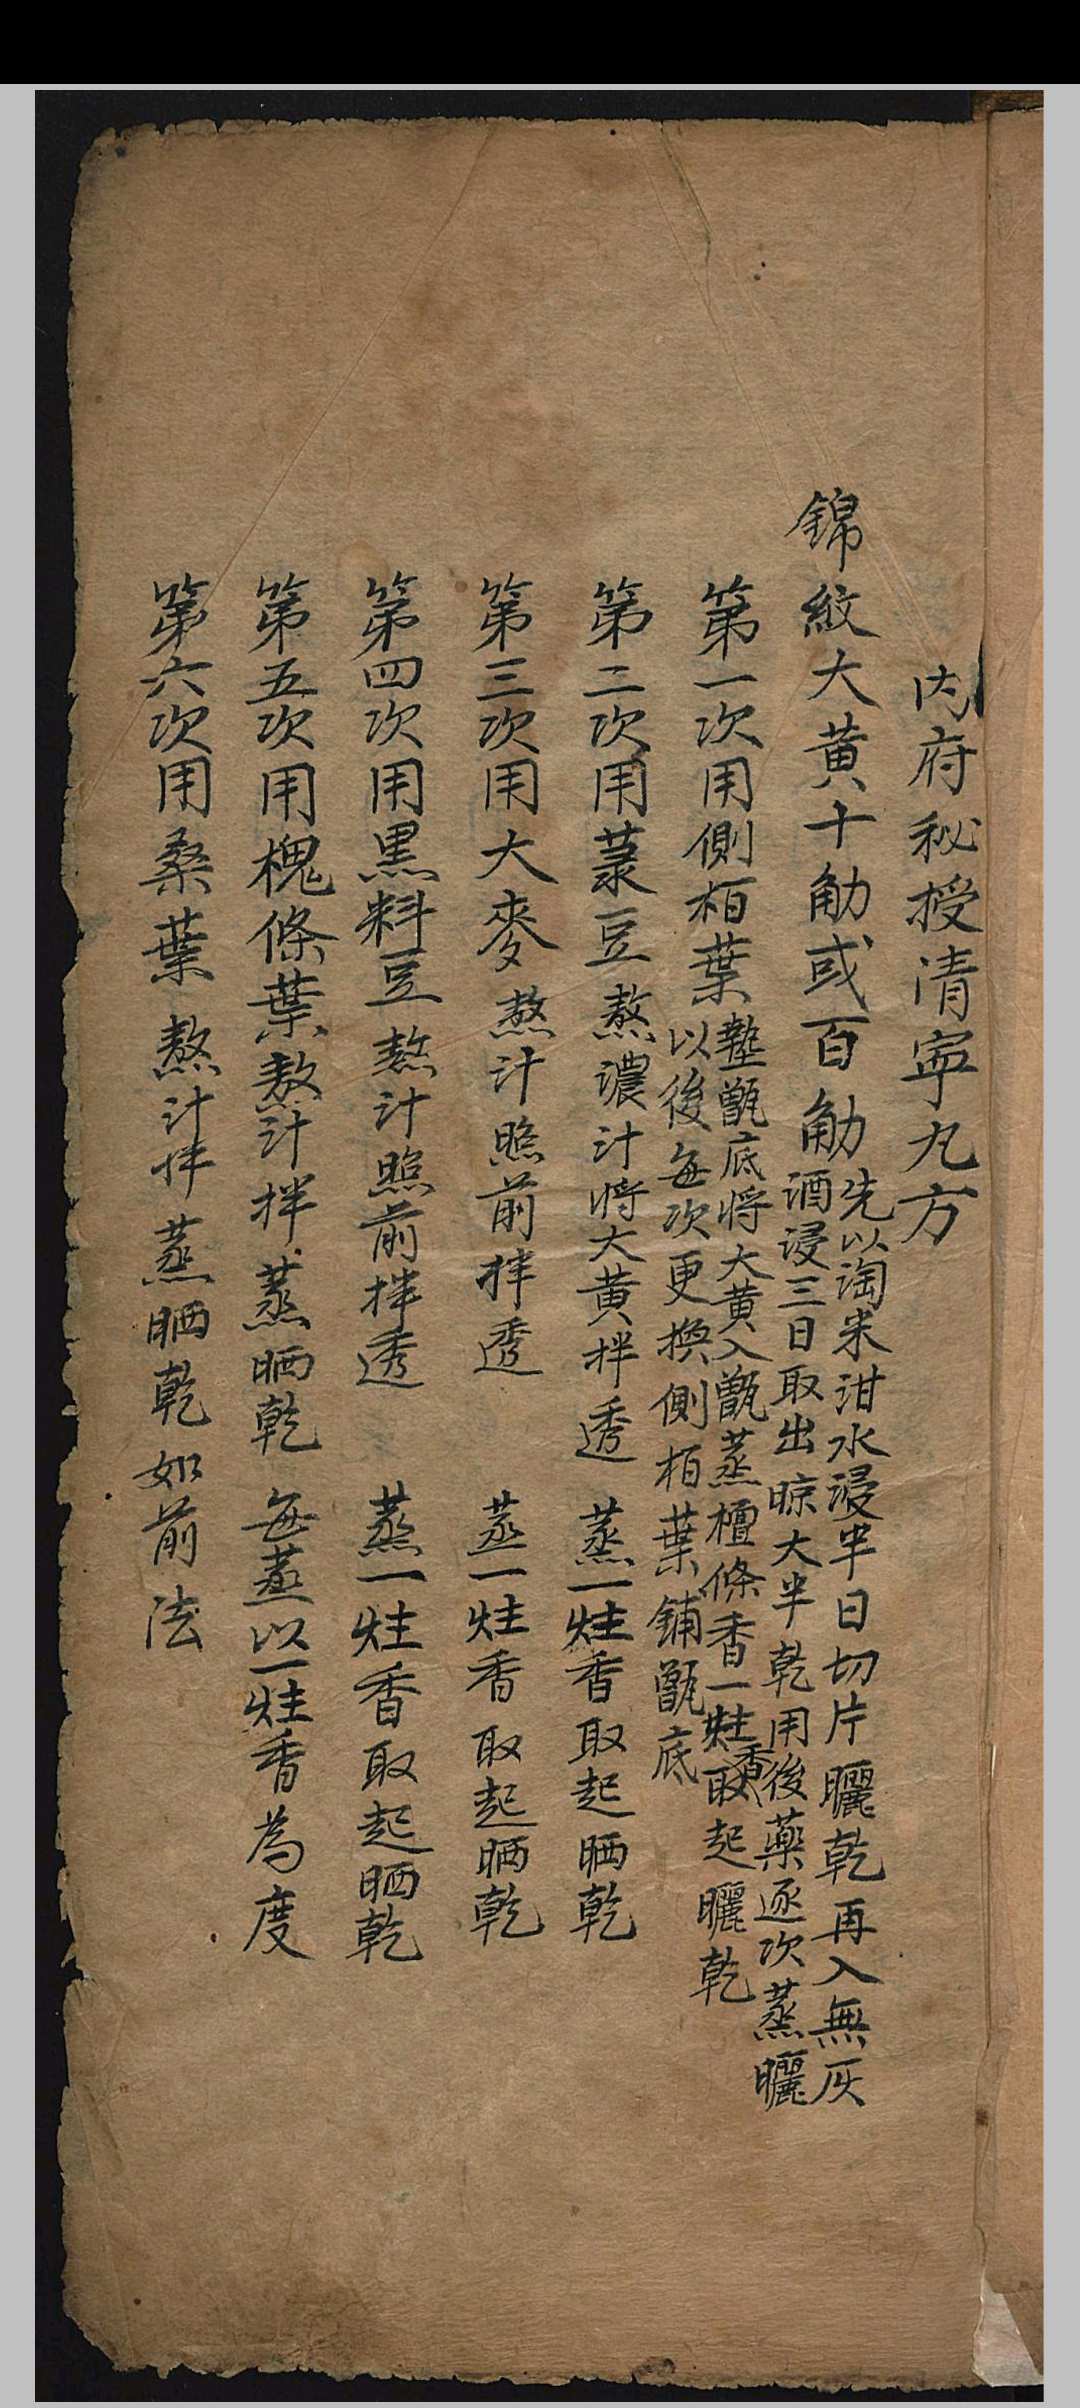 内府秘授清寧九方
錦紋大黄十觔或百觔
先以淘米泔水浸半日切片曬乾再入無灰
酒浸三日取出晾大半乾用後藥逐次蒸曬
第一次用側栢葉
墊甑底將大黄入甑蒸檀條香一炷香取起曬乾
以後每次更換側栢葉鋪甑底
第二次用菉豆熬濃汁將大黄拌透 蒸一炷香取起晒乾
第三次用大麥熬汁照前拌透 蒸一炷香取起晒乾
第四次用黒料豆熬汁照前拌透 蒸一炷香取起晒乾
第五次用槐條葉熬汁拌蒸晒乾 每蒸以一炷香為度
第六次用桑葉熬汁拌蒸晒乾如前法